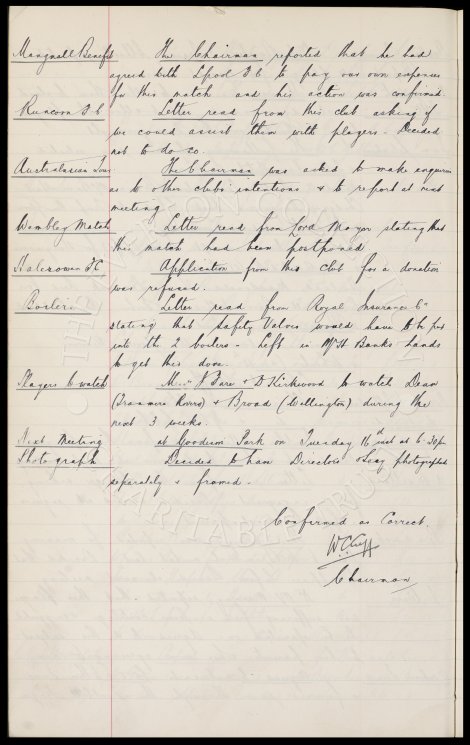 Mangnall Benefit The Chairman reported that he had
agreed with Lpool F C to pay our own expenses
for this match and his action was confirmed.
Runcorn F C Letter read from this club asking if
we could assist them with players - Decided
not to do so.
Australasian Tour The Chairman was asked to make enquiries
as to other clubs intentions & to report at next
meeting.
Wembley Match Letter read from Lord Mayor stating that
this match had been postponed
Halesowen FC Application from this club for a donation
was refused.
Boilers Letter read from Royal Insurance Co
stating that Safety Valves would have to be put
into the 2 boilers - Left in Mr H Banks hands
to get this done.
Players to watch Messrs Pare & D Kirkwood to watch Dean
(Tranmere Rovers) & Broad (Wellington) during the
next 3 weeks.
Next Meeting at Goodison Park on Tuesday 16th inst at 6.30pm
Photograph Decided to have Directors & Secy photographed
separately & framed.
Confirmed as Correct.
W.C. Cuff
Chairman
CHARITABLE TRUST